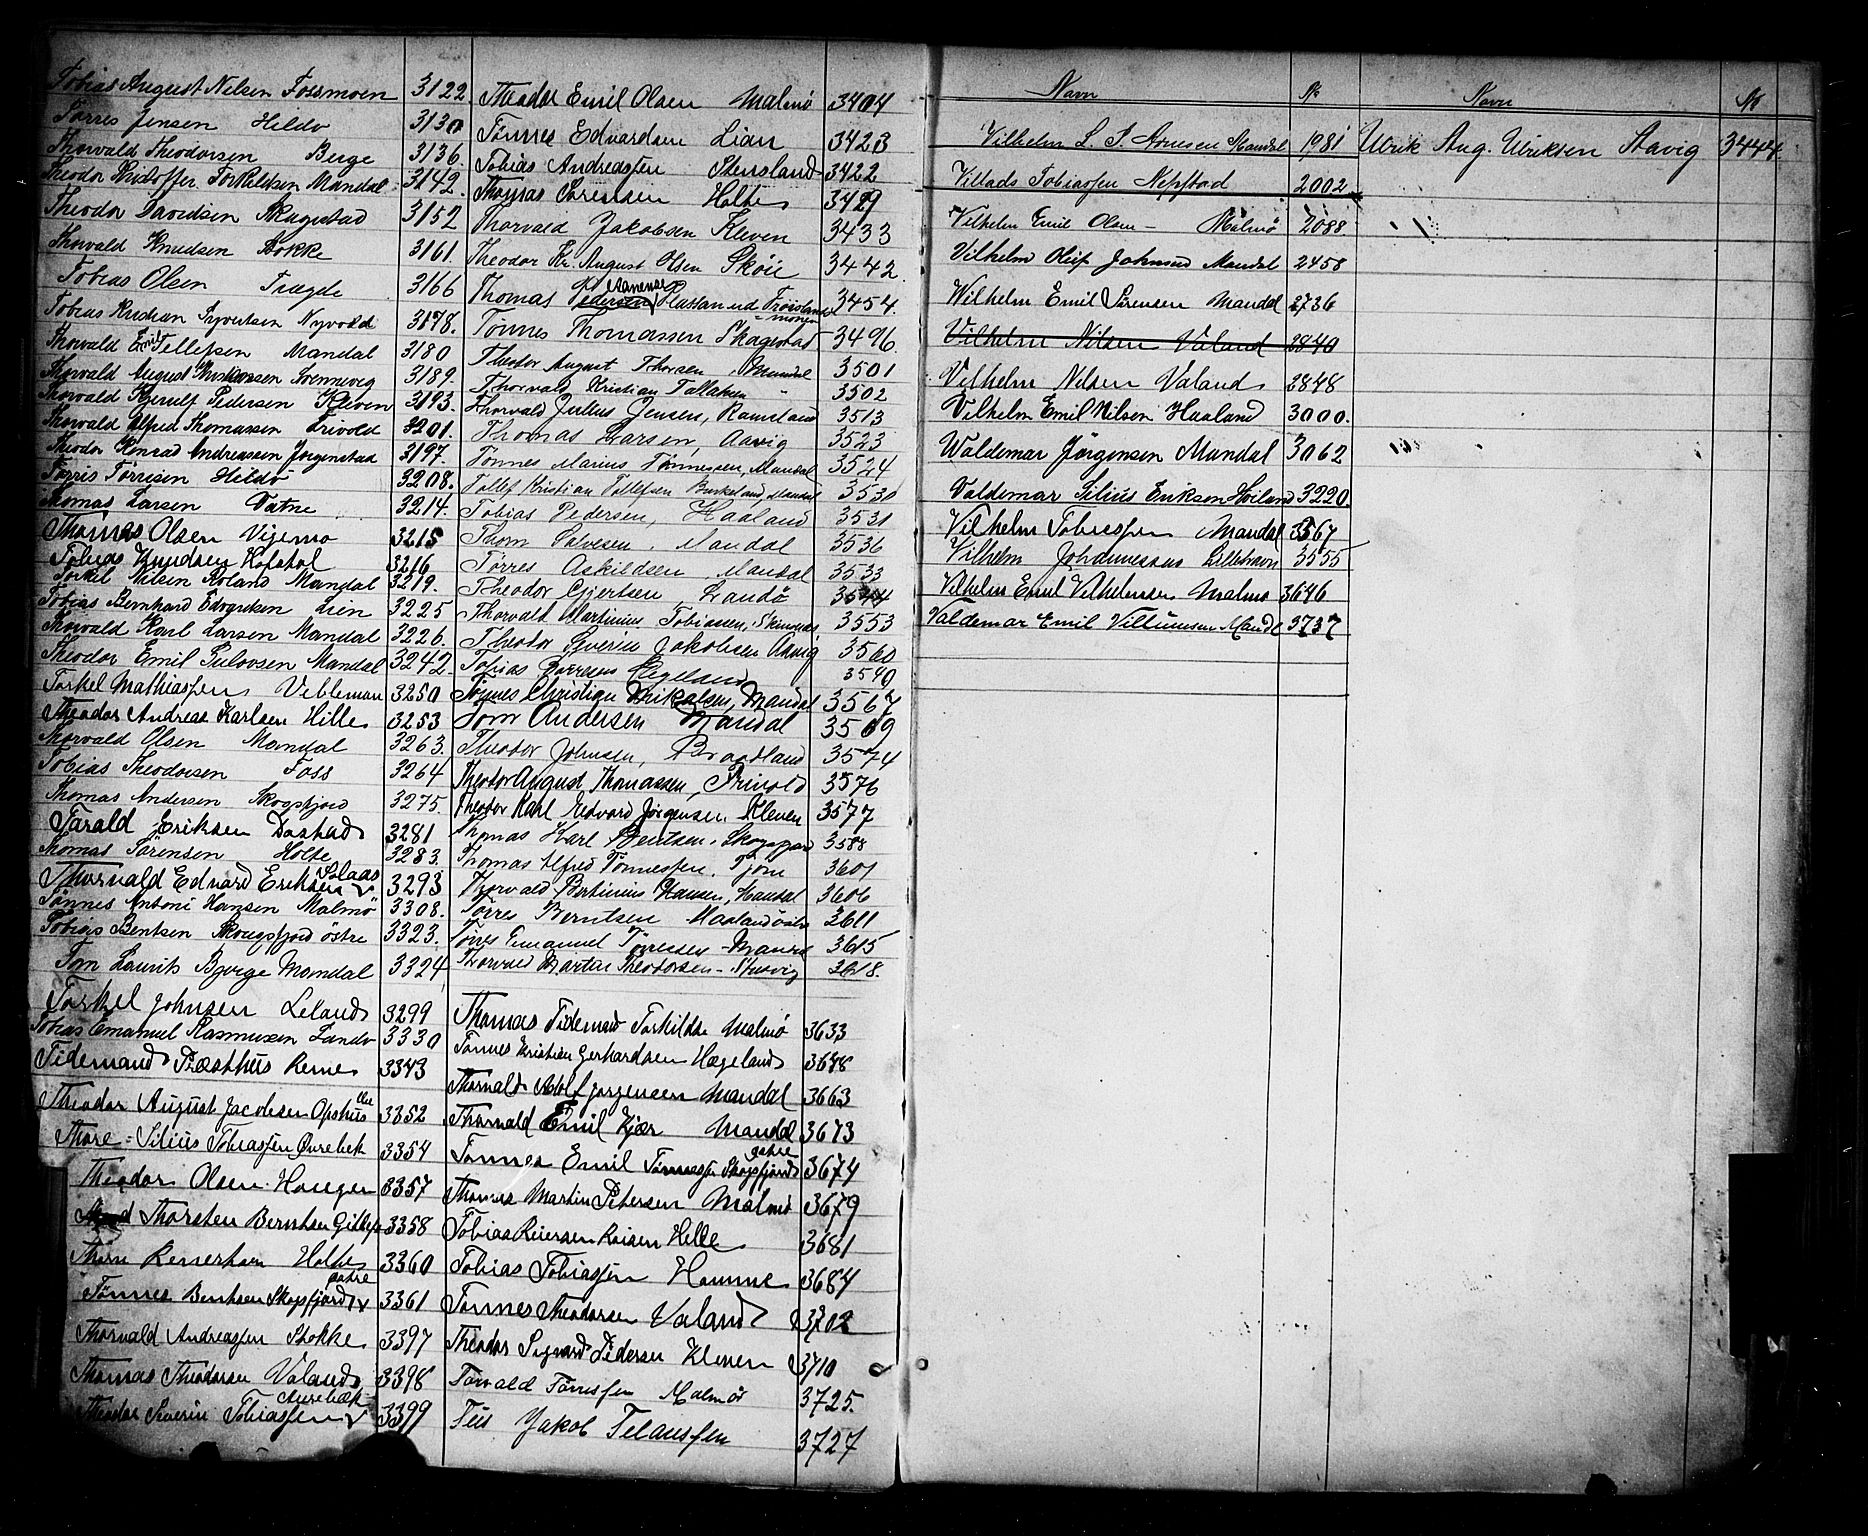 Tobias August Nilsen Fossmoen 3122
Tørres Jensen Hildø 3130
Thorvald Theodorsen Berge 3136.
Theodor Kristoffer Torkildsen Mandal 3142.
Theodor Davidsen Skagestad 3152
Thorvald Knudsen Stokke 3161.
Tobias Olsen Trægde 3166
Tobias Kristian Syvertsen Nyvold 3178.
Thorvald Emil Tellefsen Mandal 3180
Thorvald August Svennevig 3189.
Thorvald Pedersen Kleven 3193.
Thorvald Alfred Thomassen Frivold 3201.
Theodor Konrad Andreassen Jørgenstad 3197.
Tørris Tørrisen Hildø 3208.
Thomas Larsen Vatne 3214.
Thomas Olsen Vigemo 3215
Tobias Knudsen 3216
Torkel Nilsen Roland Mandal 3219.
Tobias Bernhard Edvardsen Lien 3225
Thorvald Karl Larsen Mandal 3226.
Theodor Emil Mandal 3242.
Torkel Mathiassen Vebleman 3250
Theodor Andreas Karlsen Hille 3253
Thorvald Olsen Mandal 3263.
Tobias Theodorsen Foss 3264
Thomas Andersen Skogsfjord 3275.
Tarald Eriksen Dastad 3281
Thomas Sørensen Holte 3283.
Thorvald Edvard Eriksen 3293
Tønnes Antoni Hansen Malmø 3308.
Tobias Bentsen Skougsfjord østre 3323.
Tom Laurits Bjerge Mandal 3324
Torkel Johnsen Leland 3299
Tobias Emanuel Rasmussen Landø 3330
Tidemand 3343
Theodor August Jacobsen 3352
Thore Silius Tobiassen Øvrebek 3354
Theodor Olsen Haugen 3357
Thorsten Berntsen 3358
Holte 3360
østre
Tønnes Bentsen Skogsfjord 3361
Thorvald Andreassen Stokke 3397
Thomas Theodorsen Valand 3398
Øvrebæk
Theodor Severin Tobiassen 3399
Theodor Emil Olsen Malmø 3404
Tønnes Edvardsen Lian 3423
Tobias Andreassen Stensland 3422
Thomas Sørensen Holte 3429
Thorvald Jakobsen Kleven 3433
Theodor Kr. August Olsen Skøie 3442
Thomas Pedersen 3454.
Tønnes Thomassen Skagestad 3496.
Theodor August Thorsen Mandal 3501
Thorvald Kristian Tallaksen " 3502
Thorvald Julius Jensen, 3513
Thomas Larsen, Aavig 3523
Tønnes Marius Tønnessen, Mandal 3524
Tellef Kristian Tellefsen Mandal 3530
Tobias Pedersen, Haaland 3531
Thom Salvesen. Mandal 3536
Tørres Askildsen Mandal 3533
Theodor Gjertsen Landø
Thorvald Martinius Tobiassen, 3553
Theodor Severin Jakobsen Aavig 3560
Tobias Hegeland 3590
Tønnes Christian Mikalsen, Mandal 3567
Tom Andersen Mandal 3569
Theodor Johnsen, Braadland 3574
Theodor August Thomassen, Frivold 3576
Theodor Karl Edvard Jørgensen Kleven 3577
Thomas Karl Bentsen, Skogsfjord 3588
Thomas Alfred Tønnessen. Tjøm 3601
Thorvald Hansen, Mandal 3606
Tørres Berntsen 3611
Tørres Emanuel Tørressen - Mandal 3615
Thorvald Martin Theodorsen - 3618.
Thomas Tidemand Torkildsen Malmø 3633
Tønnes Kristian Gerhardsen Hægeland 3648
Thorvald Adolf Jørgensen Mandal 3663
Thorvald Emil Kjær Mandal 3673
østre
Tønnes Emil Tønnessen Skogsfjord 3674
Thomas Martin Petersen Malmø 3679
Tobias Reiersen Hille 3681
Tobias Tobiassen Homme 3684
Tønnes Theodorsen Valand 3702
Theodor Sigvard Pedersen Kleven 3710
Torvald Tørressen Malmø 3725.
Jakob 3727
Navn No Navn No
Vilhelm L. Mandal 1981
Villads Tobiassen Nepstad 2002
Vilhelm Emil Olsen - Malmø 2088
Vilhelm Oluf Johnsen Mandal 2458
Wilhelm Emil Sørensen Mandal 2736
Vilhelm Nilsen Valand 2840
Vilhelm Nilsen Valand 2848
Vilhelm Emil Nilsen Haaland 3000.
Waldemar Jørgensen Mandal 3062
Valdemar Silius Eriksen Høiland 3220.
Vilhelm Tobiassen Mandal 3567
Vilhelm Johannessen 3555
Vilhelm Emil Vilhelmsen Malmø 3646
Valdemar Emil Mandal 3737
Ulrik Aug. Ulriksen Aavig 3444.